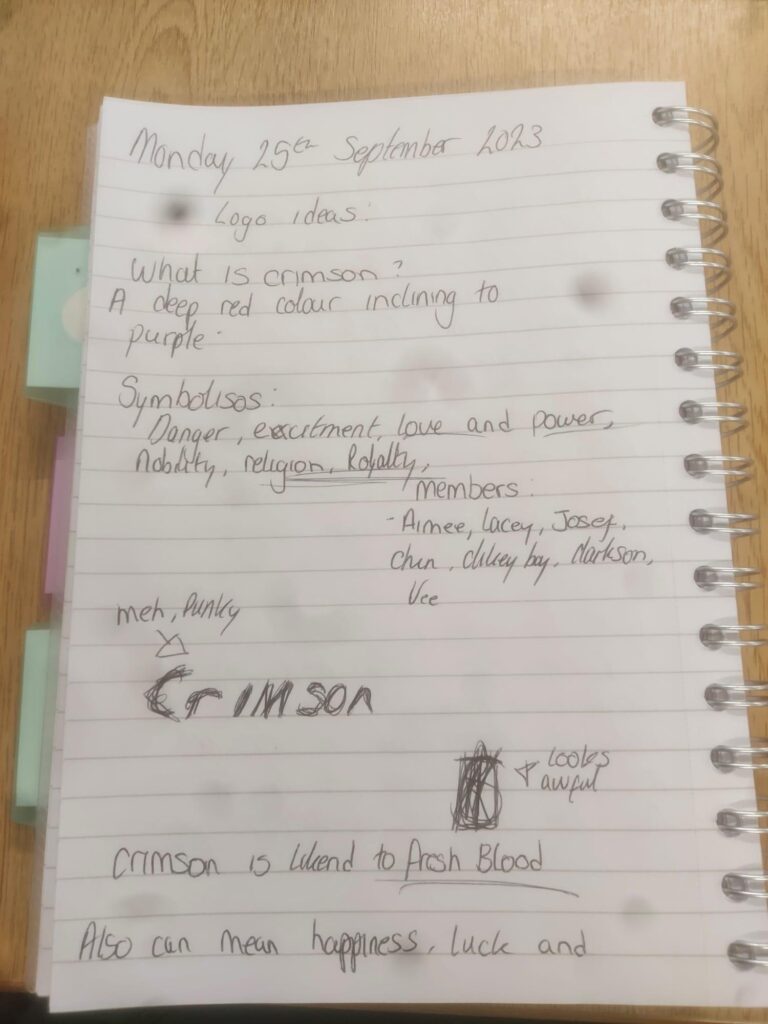 Monday 25th September 2023
Logo ideas:
What is crimson?
A deep red colour inclining to
purple.
Symbolisos:
Danger, excitment, love and power,
Nobility, religion, Royalty,
members:
- Aimee, Lacey, Josef,
boy, Markson,
Vee
meh, Punky
Crimson
looks
awful
Crimson is likend to fresh Blood
Also can mean happiness, luck and